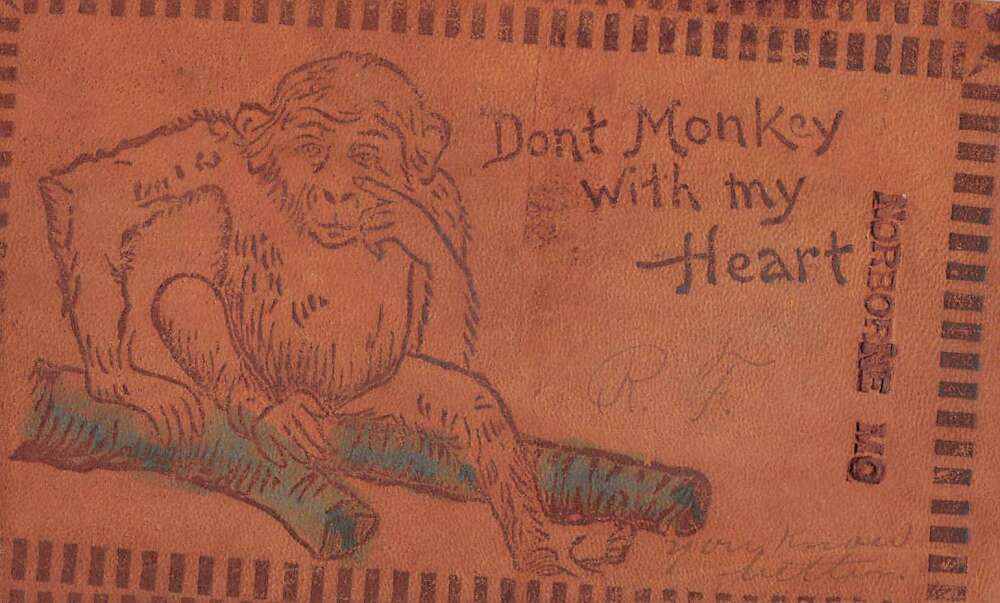 Dont Monkey
with my
Heart
NORBORNE MO
R. F.